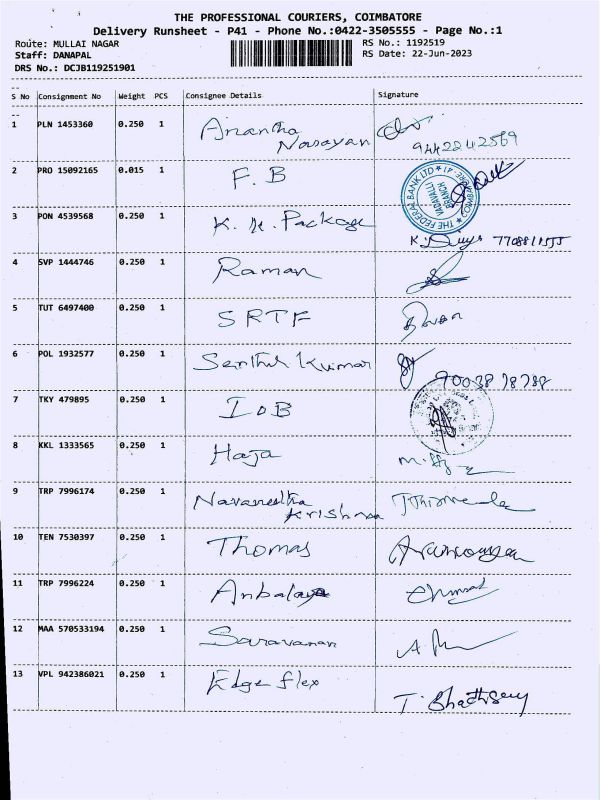 THE PROFESSIONAL COURIERS, COIMBATORE
Delivery Runsheet - P41 - Phone No.:0422-3505555 - Page No.:1
Route: MULLAI NAGAR RS No.: 1192519
Staff: DANAPAL RS Date: 22-Jun-2023
DRS No.: DCJB119251901
S No Consignment No Weight PCS Consignee Details Signature
1 PLN 1453360 0.250 1 Anantha
Narayan 9442242569
2 PRO 15092165 0.015 1 F.B
THE FEDERAL BANK LTD COIMBATORE-41
VADAVALLI
BRANCH
3 PON 4539568 0.250 1 K.M. Package
4 SVP 1444746 0.250 1 Raman
5 TUT 6497400 0.250 1 SRTF
6 POL 1932577 0.250 1 Senthil Kumar
7 TKY 479895 0.250 1 IOB
8 KKL 1333565 0.250 1 Haja
9 TRP 7996174 0.250 1 Navaneetha
Krishna
10 TEN 7530397 0.250 1 Thomas
11 TRP 7996224 0.250 1 Anbalaga
12 MAA 570533194 0.250 1 Saravanan
13 VPL 942386021 0.250 1 Edge flex